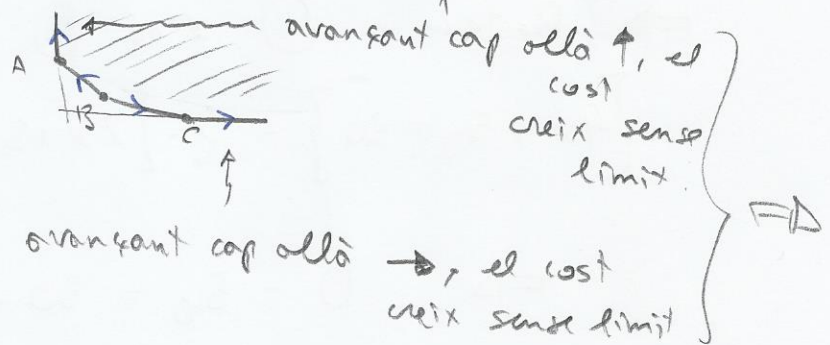 avançant cap allà ↑, el
cost
creix sense
límit.
A
B
C
⇒
avançant cap allà →, el cost
creix sense límit